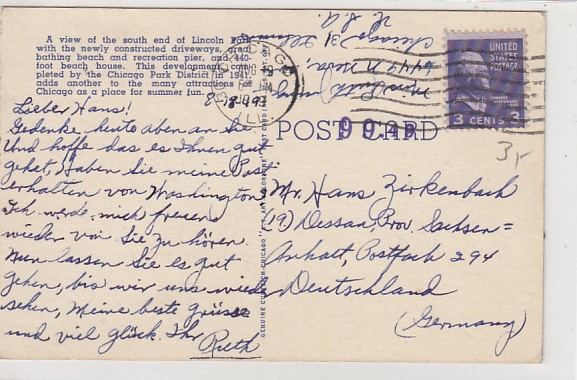 A view of the south end of Lincoln Park
with the newly constructed driveways, great
bathing beach and recreation pier, and 440-
foot beach house. This development com-
pleted by the Chicago Park District in 1941,
adds another to the many attractions of
Chicago as a place for summer fun.
8-18-49
Lieber Hans!
Gedenke heute aben an Sie
Und hoffe das es Ihnen gut
gehet, Haben Sie meine Post
erhalten von Washington
Ich werde mich freuen
wieder von Sie zu hören.
Nun lassen Sie es gut
gehen, bis wir uns wieder
sehen, Meine beste grüsse
und viel glück. Ihr
Ruth
CHICAGO
ILL
Chicago 31 Ill
U.S.A.
UNITED
STATES
POSTAGE
THOMAS JEFFERSON
3 CENTS 3
POST CARD
3,-
Mr. Hans Zirkenbach
(19) Dessau, Prov. Sachsen=
Anhalt, Postfach 294
Deutschland
(Germany)
GENUINE CURTEICH-CHICAGO